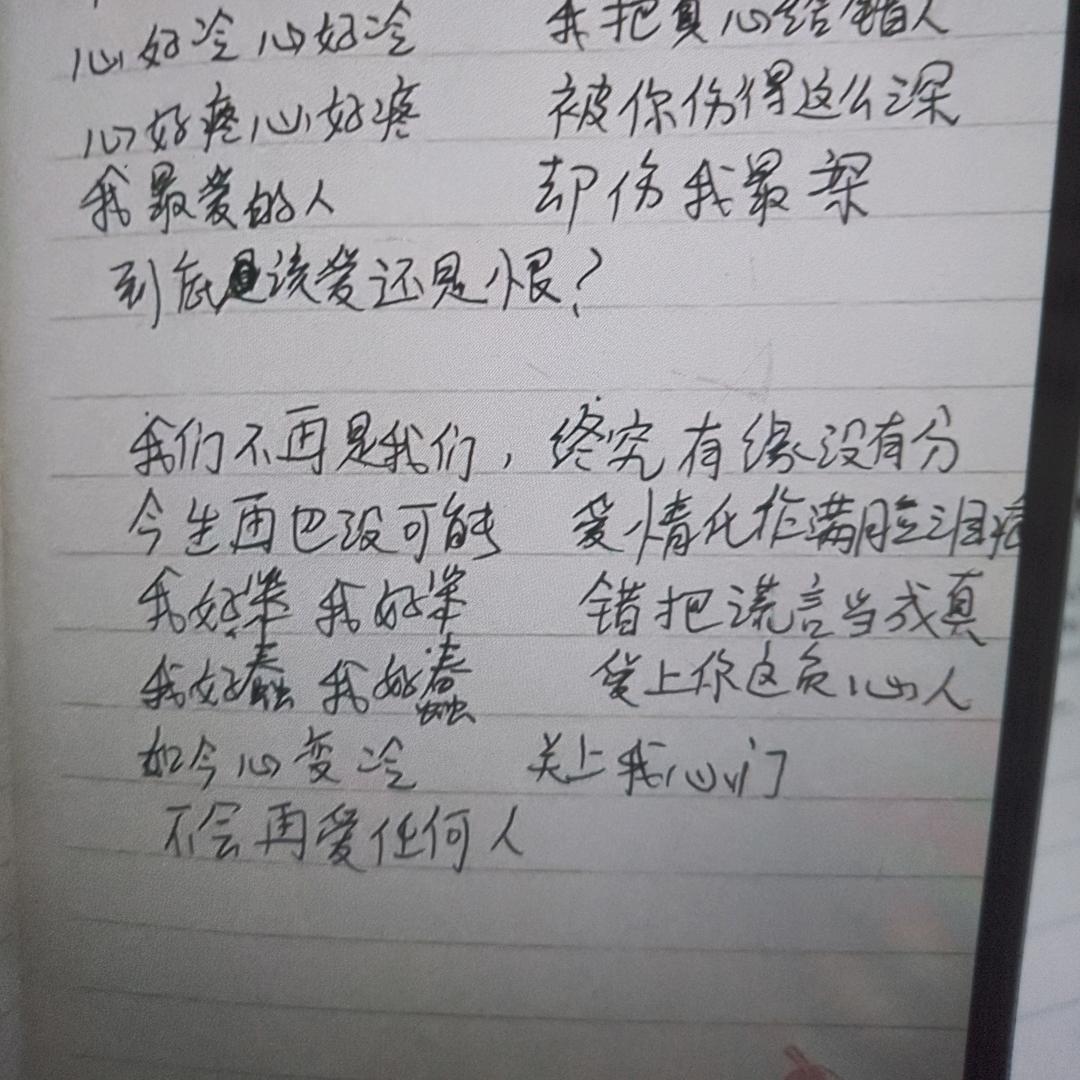 心好冷心好冷 我把真心给错人
心好疼心好疼 被你伤得这么深
我最爱的人 却伤我最深
到底是该爱还是恨?
我们不再是我们, 终究有缘没有分
今生再也没可能 爱情化作满腔泪痕
我好笨 我好笨 错把谎言当成真
我好蠢 我好蠢 爱上你这负心人
如今心变冷 关上我心门
不会再爱任何人